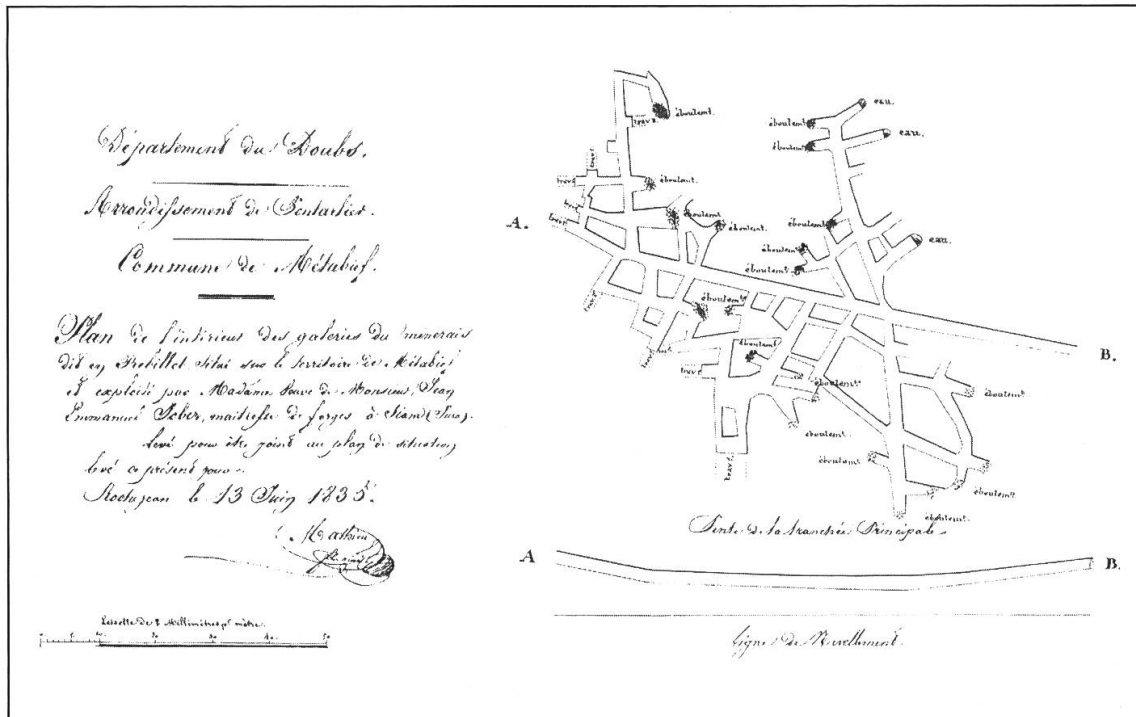 Département du Doubs.
Arrondissement de Pontarlier.
Commune de Métabief.
Plan de l'intérieur des galeries du minerais
dit en Situé sur le territoire de Métabief
et exploité par Madame Veuve de Monsieur Jean
Emmanuel Jober, maitresse de forges à Siam (Jura).
Levé pour être joint au plan de situation
levé ce présent jour.
Rochejean le 13 Juin 1835.
Mathieu
Echelle de 2 Millimètres pr mètre.
A.
B.
éboulemt.
travl.
eau.
éboulemt.
éboulemt.
eau.
éboulemt.
travl.
travl.
travl.
travl.
éboulemt.
éboulemt.
éboulemt.
éboulemt.
éboulemt.
eau.
éboulemt.
éboulemt.
travl.
éboulemt.
éboulemt.
éboulemt.
éboulemt.
éboulemt.
éboulemt.
travl.
Pente de la tranchée Principale.
A
B.
Ligne de Nivellement.